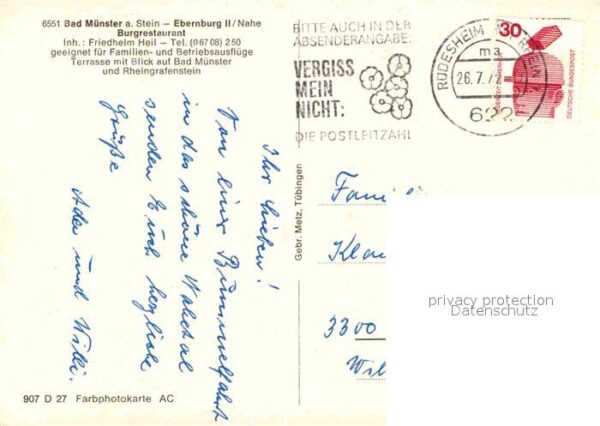 6551 Bad Münster a. Stein – Ebernburg II/Nahe
Burgrestaurant
Inh.: Friedhelm Heil – Tel. (06708) 250
geeignet für Familien- und Betriebsausflüge
Terrasse mit Blick auf Bad Münster
und Rheingrafenstein
BITTE AUCH IN DER
ABSENDERANGABE:
VERGISS
MEIN
NICHT:
DIE POSTLEITZAHL
RÜDESHEIM RHEIN
ma
26.7.72
622
30
DEUTSCHE BUNDESPOST
Ihr Lieben!
Von einer Bummelfahrt
in das schöne
senden Euch herzliche
Grüße
und Willi.
Gebr. Metz, Tübingen
Famili
Kla
3300
Wil
privacy protection
Datenschutz
907 D 27 Farbphotokarte AC